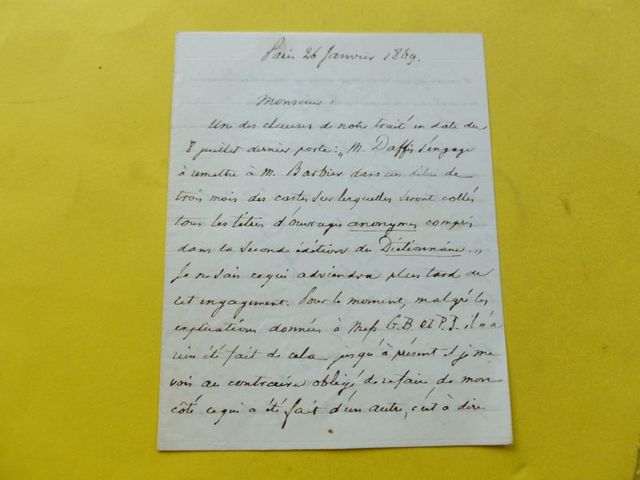 Paris 26 Janvier 1869.
Monsieur,
Une des clauses de notre traité en date du
8 juillet dernier porte : „ M. Daffis s'engage
à remettre à M. Barbier dans un délai de
trois mois des cartes sur lesquelles seront collés
tous les titres d'ouvrages anonymes compris
dans la seconde édition du Dictionnaire. „
Je ne sais ce qui adviendra plus tard de
cet engagement. Pour le moment, malgré les
explications données à Mess G. B et P. J. il n'a
rien été fait de cela jusqu'à présent et je me
vois au contraire obligé de refaire de mon
côté ce qui a été fait d'un autre, c'est à dire